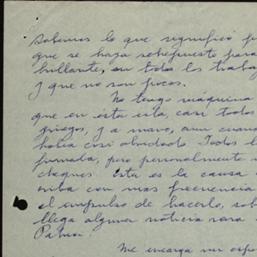 Sabemos lo que significó p
que se haya sobrepuesto para
brillante, en todo los trabaj
y que no son pocos.
No tengo máquina
que en ésta está, casi todos
griegos, y a mano, aun cuand
había casi olvidado. Todos l
pero personalmente
cheques. Esta es la causa
criba con mas frecuencia
el impulso de hacerlo, sob
llega alguna noticia rara
Me encarga mi espo